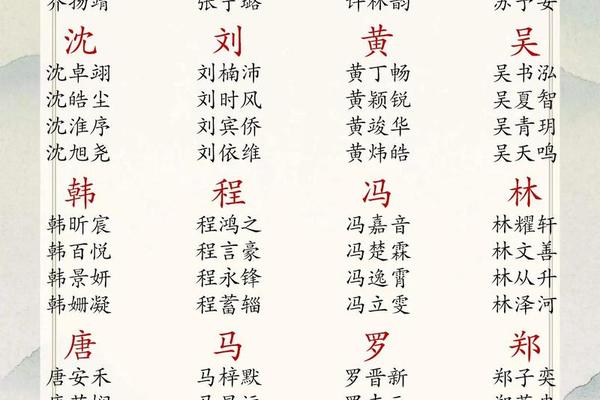 沈 刘 黄 吴
沈卓翊 刘楠沛 黄丁畅 吴书泓
沈皓尘 刘时风 黄颖锐 吴夏智
沈淮序 刘宾侨 黄竣华 吴青玥
沈旭尧 刘依维 黄炜皓 吴天鸣
韩 程 冯 林
韩昕宸 程鸿之 冯嘉音 林耀轩
韩百悦 程言豪 冯楚霖 林文善
韩景妍 程永锋 冯逸霄 林从升
韩姗凝 程蓄辎 冯立雯 林泽河
唐 马 罗 郑
唐安禾 马梓默 罗晋新 郑子奕